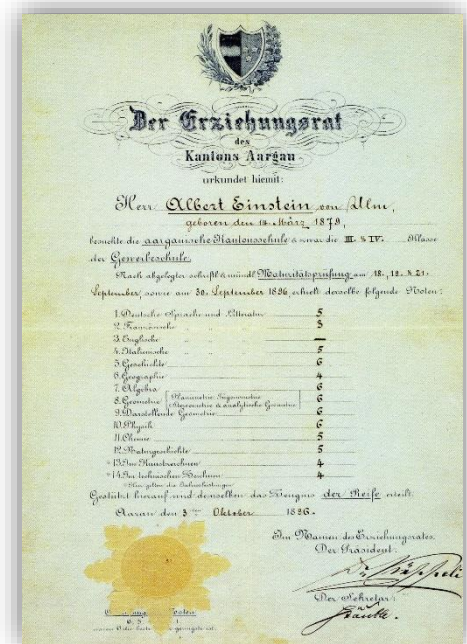 Der Erziehungsrat
des
Kantons Aargau
urkundet hiemit:
Herr Albert Einstein von Ulm,
geboren den 14. März 1879,
besuchte die aargauische Kantonsschule & zwar die III. & IV. Klasse
der Gewerbeschule.
Nach abgelegter schriftl. & mündl. Maturitätsprüfung am 18., 19. & 21.
September, sowie am 30. September 1896, erhielt derselbe folgende Noten:
1. Deutsche Sprache und Litteratur 5
2. Französische 3
3. Englische —
4. Italienische 5
5. Geschichte 6
6. Geographie 4
7. Algebra 6
8. Geometrie (Planimetrie, Trigonometrie, Stereometrie & analytische Geometrie) 6
9. Darstellende Geometrie 6
10. Physik 6
11. Chemie 5
12. Naturgeschichte 5
* 13. Im Kunstzeichnen 4
* 14. Im technischen Zeichnen 4
* Hier gelten die Jahresleistungen.
Gestützt hierauf wird demselben das Zeugnis der Reife erteilt.
Aarau den 3ten Oktober 1896.
Im Namen des Erziehungsrates,
Der Präsident:
Der Sekretär: